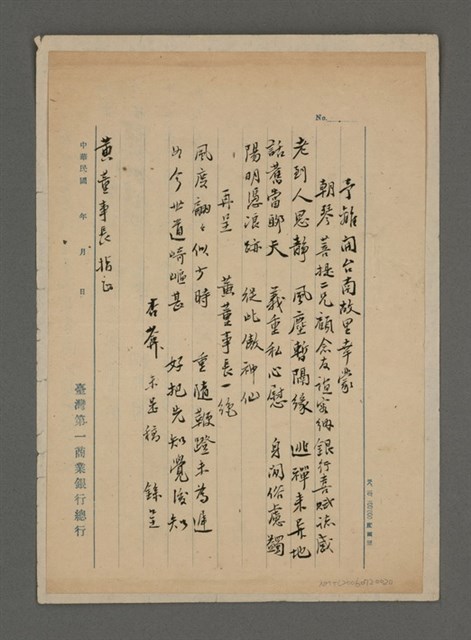 No.
予離開台南故里幸蒙
朝琴菩提二兄顧念友誼容納銀行喜賦誌感
老到人思靜 風塵暫隔緣 逃禪來異地
話舊當聊天 義重私心慰 身閒俗慮蠲
陽明憑浪跡 從此傲神仙
再呈 黃董事長一絕
風度翩々似少時 重隨鞭蹬未為遲
如今世道崎嶇甚 好把先知覺後知
杏葊 未是稿 錄呈
黃董事長 指正
中華民國 年 月 日
臺灣第一商業銀行總行